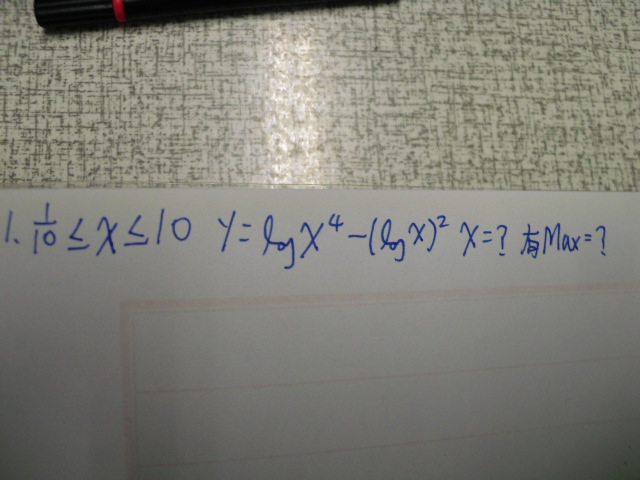 1. 1/10 ≤ x ≤ 10 y = log x⁴ - (log x)² x = ? 有Max = ?